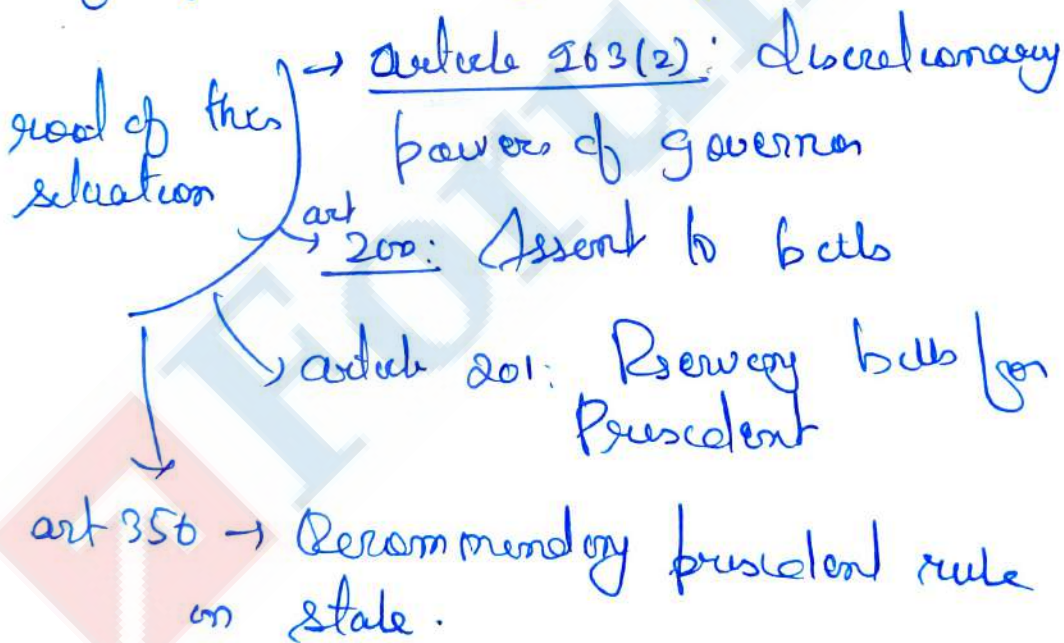 root of this
situation
→ article 263(2): discretionary
powers of governor
art
→ 200: Assent to bills
→ article 201: Reserving bills for
President
art 356 → Recommending president rule
on state.
Forum